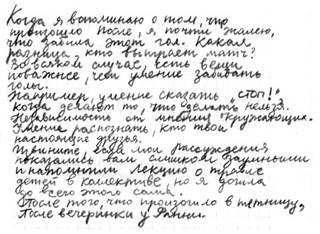 Когда я вспоминаю о том, что
произошло после, я почти жалею,
что забила этот гол. Какая
разница, кто выиграет матч?
Во всяком случае, есть вещи
поважнее, чем умение забивать
голы.
Например умение сказать "стоп!",
когда делают то, что делать нельзя.
Независимость от мнения окружающих.
Умение распознать, кто твои
настоящие друзья.
Извините, если мои рассуждения
показались вам слишком заумными
и напомнили лекцию о травле
детей в коллективе, но я дошла
до всего этого сама.
После того, что произошло в пятницу,
После вечеринки у Фанни.